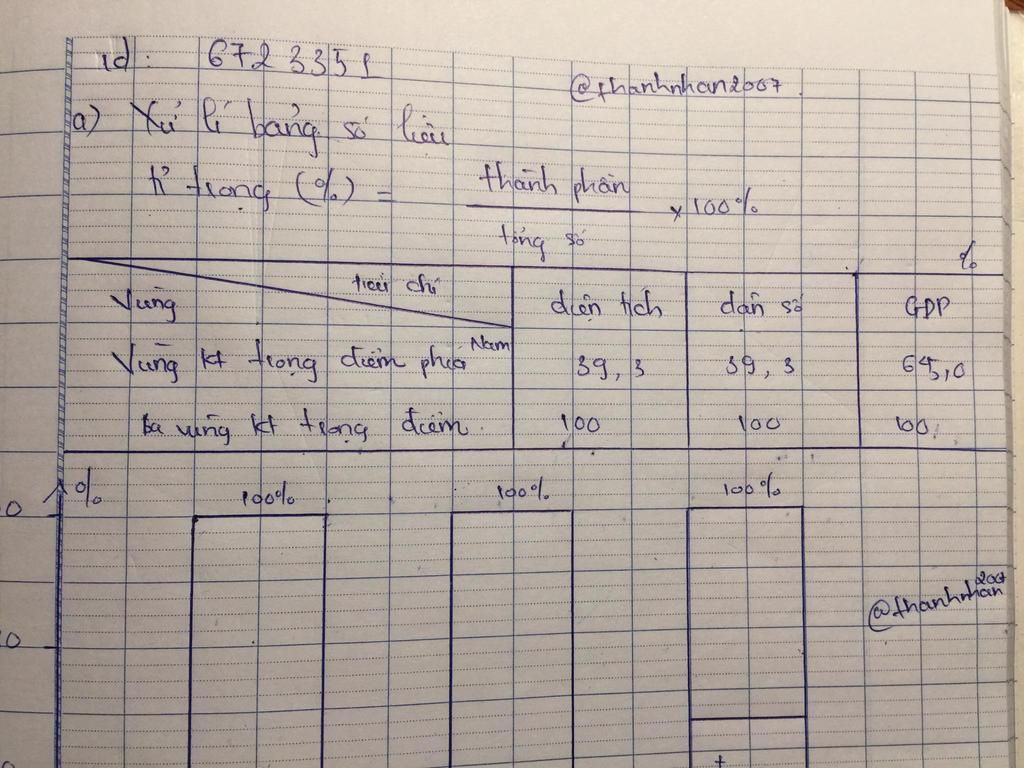 id: 6723351
@thanhnhan2007.
a) Xử lí bảng số liệu
tỉ trọng (%) = thành phần
x 100%
tổng số
%
tiêu chí
Vùng
diện tích
dân số
GDP
Vùng kt trọng điểm phía Nam
39,3
39,3
65,0
ba vùng kt trọng điểm.
100
100
100.
%
100%
100%
100%
0
@thanhnhan2007
0
+